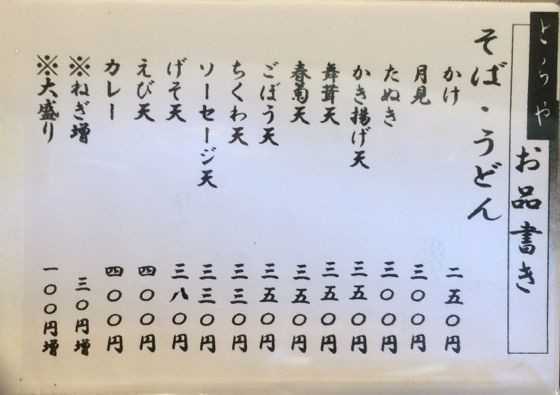 とらや
お品書き
そば・うどん
かけ 二五〇円
月見 三〇〇円
たぬき 三〇〇円
かき揚げ天 三五〇円
舞茸天 三五〇円
春菊天 三五〇円
ごぼう天 三五〇円
ちくわ天 三三〇円
ソーセージ天 三三〇円
げそ天 三八〇円
えび天 四〇〇円
カレー 四〇〇円
※ねぎ増 三〇円増
※大盛り 一〇〇円増